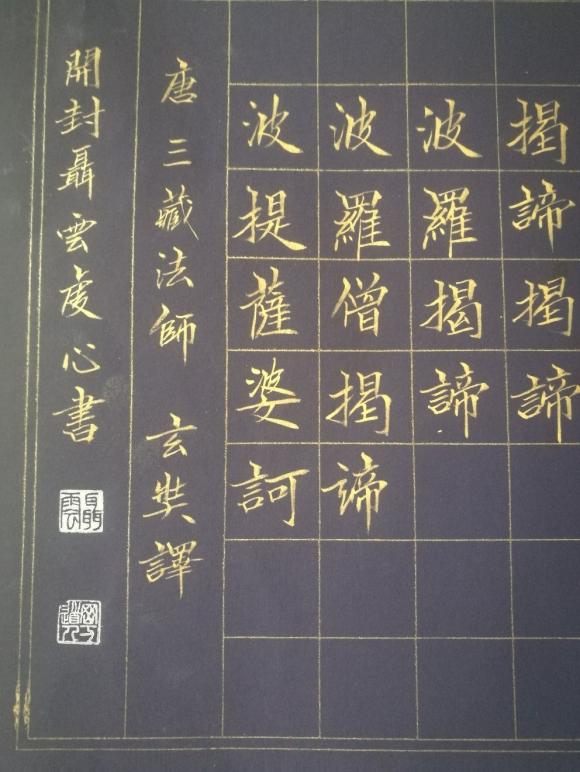 揭諦揭諦
波羅揭諦
波羅僧揭諦
波提薩婆訶
唐三藏法師 玄奘譯
開封聶雲虔心書
聶雲